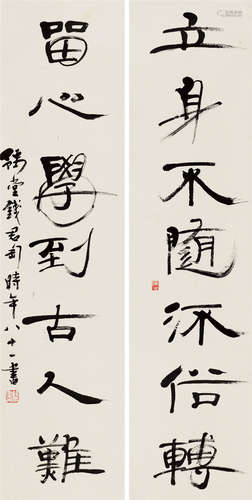 立身不隨流俗轉
留心學到古人難
豫堂錢君匋時年八十一書